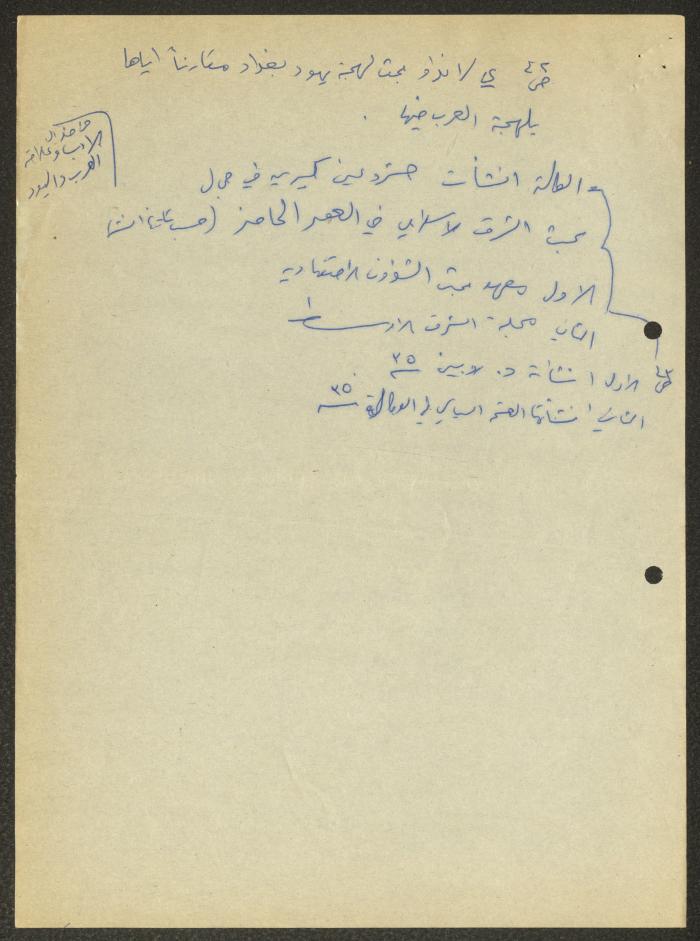 ص ٤٢ ي لانداو بحث لهجة يهود بغداد مقارناً اياها
بلهجة العرب فيها .
الأدب وعلاقة
العرب واليهود
الوكالة انشأت مشروعين كبيرين في مجال
بحث الشرق الاسلامي في العصر الحاضر (حسب
الاول معهد بحث الشؤون الاقتصادية
الثاني مجلة الشرق الاوسط
ص ٤٣ الاول انشأة د. ٣٥
الثاني انشأتها القسم السياسي في الوكالة ٣٥